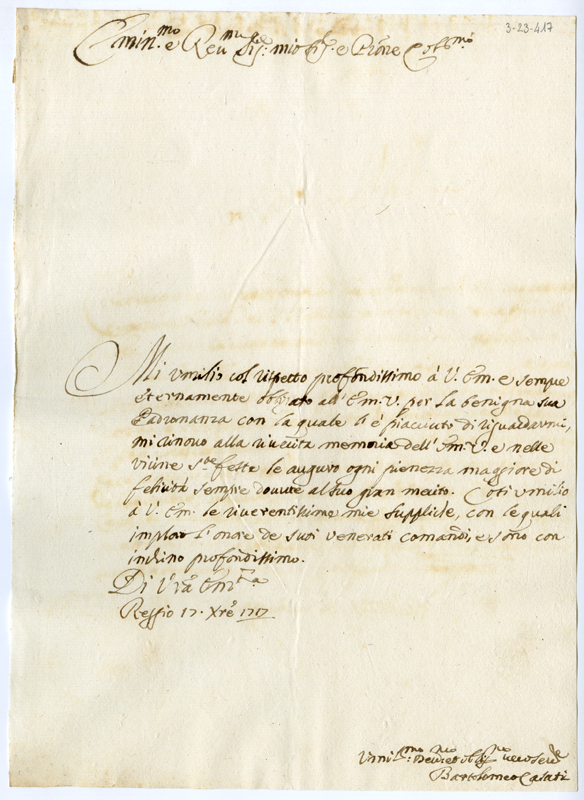 3-23-417
Emin.mo e Reu.mo Sig.r mio Sig.r e Prone Col.mo
Mi vmilio col rispetto profondissimo à V. Em. e sempre
eternamente obbligato all' Em. V. per la benigna sua
Padronanza con la quale si è piaciuto di riguardarmi,
mi rinouo alla riuerita memoria dell' Em. V. e nelle
vicine S.te feste le auguro ogni pienezza maggiore di
felicità sempre douute al suo gran merito. Così vmilio
à V. Em. le riuerentissime mie supplicle, con le quali
imploro l'onore de suoi venerati comandi, e sono con
inchino profondissimo.
Di V.ra Em.za
Reggio 17. Xre 1717
Vmil.mo Deu.mo ed obblig.mo vero seru.
Bartolomeo Casati